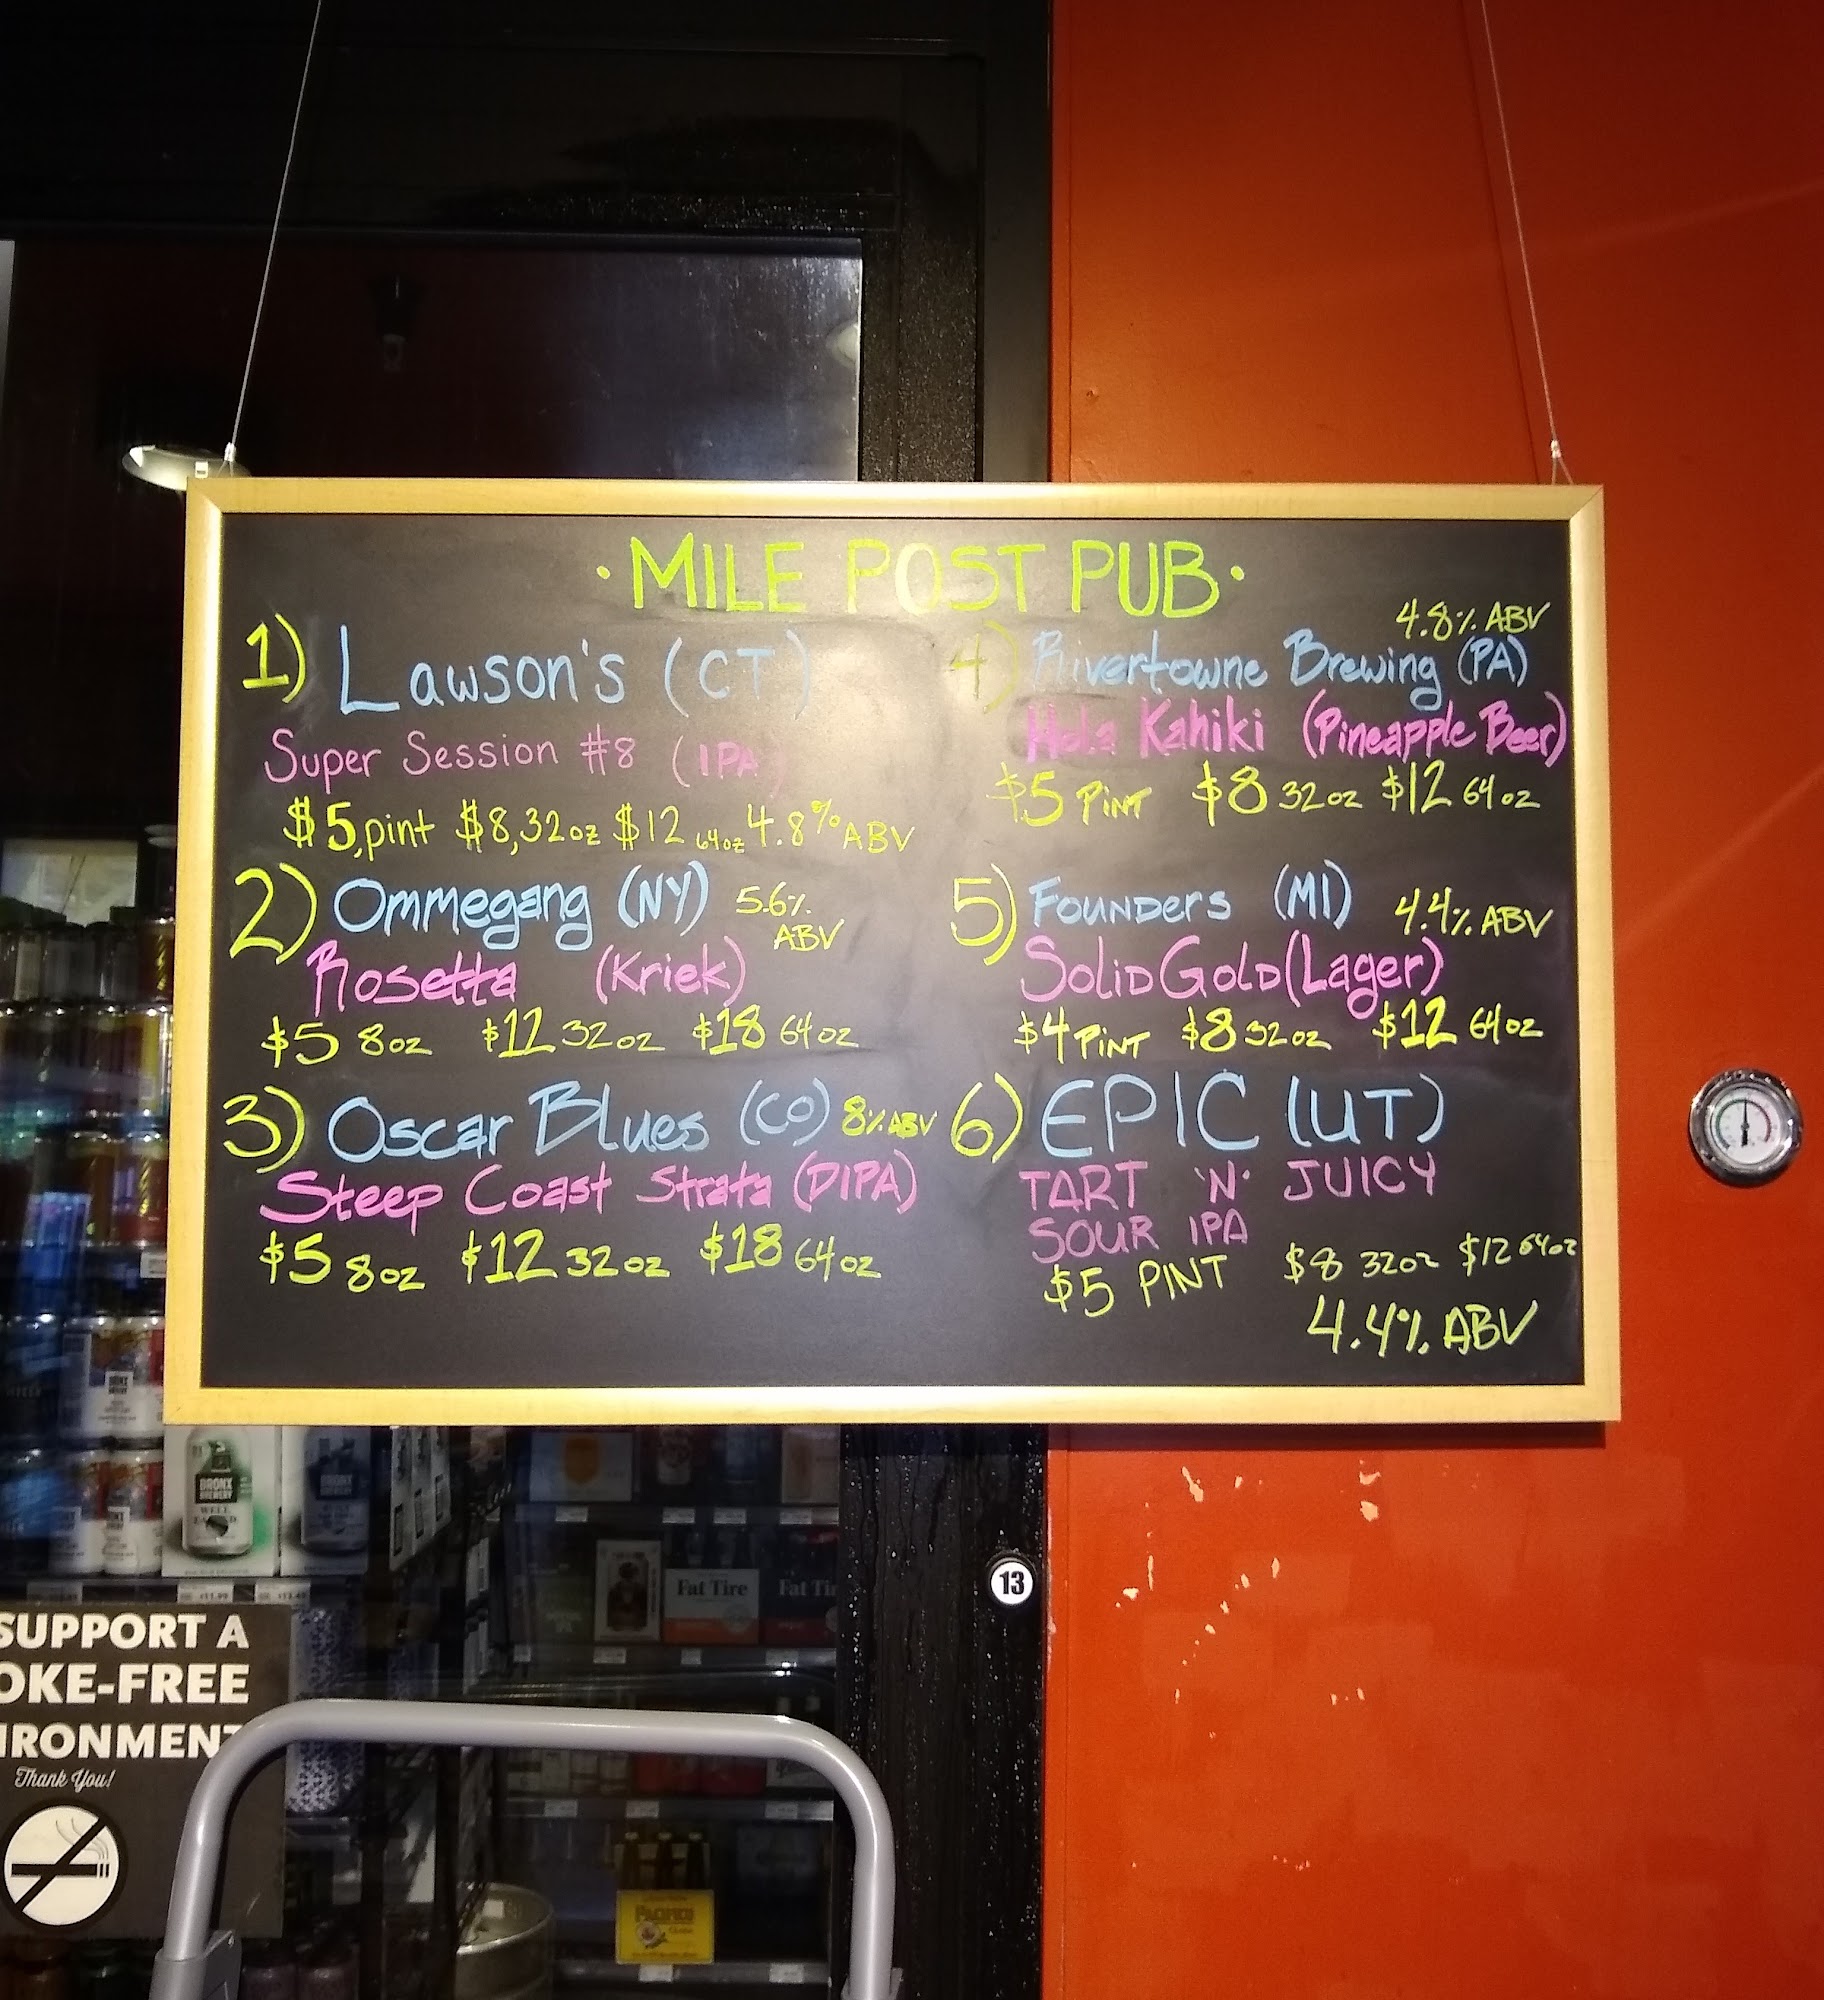 · MILE POST PUB ·
1) Lawson's (CT)
Super Session #8 (IPA)
$5, pint $8, 32oz $12 64oz 4.8% ABV
2) Ommegang (NY) 5.6%
ABV
Rosetta (Kriek)
$5 8oz $12 32oz $18 64oz
3) Oscar Blues (CO) 8% ABV
Steep Coast Strata (DIPA)
$5 8oz $12 32oz $18 64oz
4.8% ABV
4) Rivertowne Brewing (PA)
Hola Kahiki (Pineapple Beer)
$5 PINT $8 32oz $12 64oz
5) Founders (MI) 4.4% ABV
Solid Gold (Lager)
$4 PINT $8 32oz $12 64oz
6) EPIC (UT)
TART 'N' JUICY
SOUR IPA
$5 PINT $8 32oz $12 64oz
4.4% ABV
BRONX
BREWERY
Fat Tire
Fat Tir
13
SUPPORT A
OKE-FREE
IRONMENT
Thank You!
PACIFICO